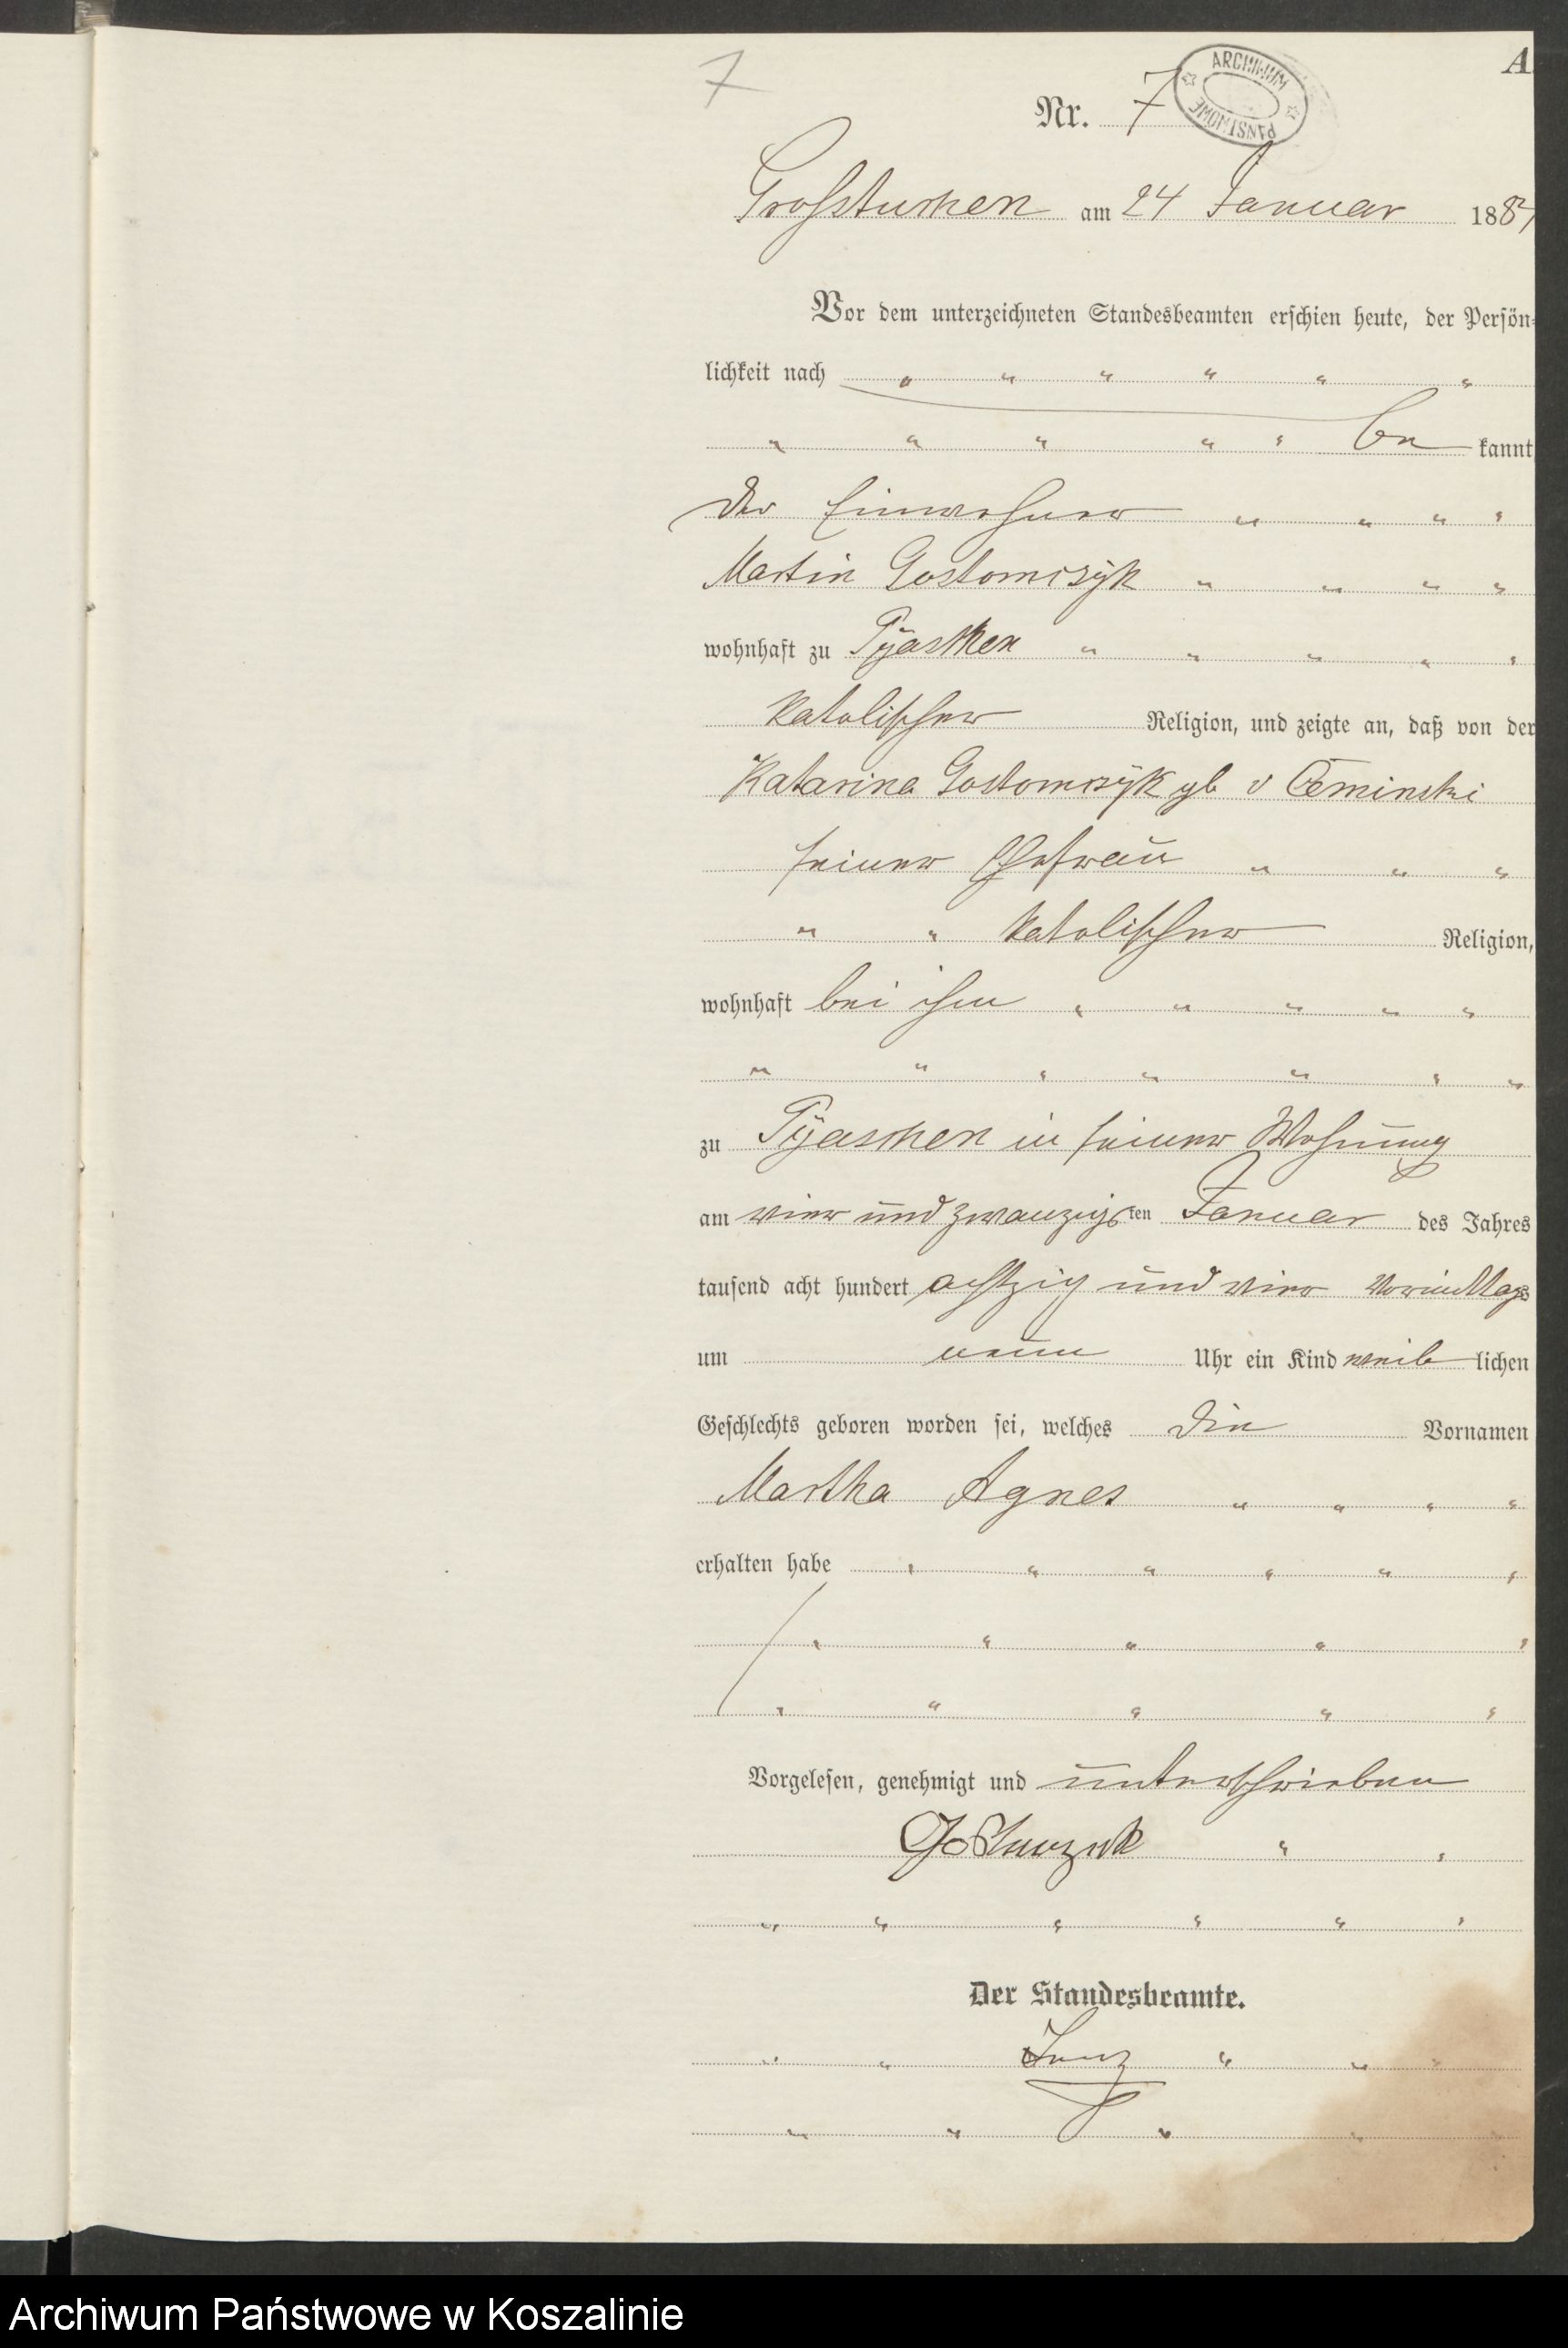 7
A
Nr. 7
ARCHIWUM PAŃSTWOWE
Grossturhen am 24 Januar 188
Vor dem unterzeichneten Standesbeamten erschien heute, der Persön-
lichkeit nach " " " " " "
" " " " " be kannt
der Einwohner " " " "
Martin Gostomczyk " " " "
wohnhaft zu Pÿaschen " " " " "
katolischer Religion, und zeigte an, daß von der
Katarina Gostomczÿk gb v Ceminski
seiner Ehefrau " " "
" " katolischer Religion,
wohnhaft bei ihm " " " " "
" " " " " " "
zu Pÿaschen in seiner Wohnung
am vier und zwanzigsten Januar des Jahres
tausend acht hundert achtzig und vier Vormittags
um neun Uhr ein Kind weib lichen
Geschlechts geboren worden sei, welches die Vornamen
Martha Agnes " " " "
erhalten habe " " " " " "
" " " " "
" " " " "
Vorgelesen, genehmigt und unterschrieben
" "
" " " " " "
Der Standesbeamte.
" " " " "
" " " " "
Archiwum Państwowe w Koszalinie